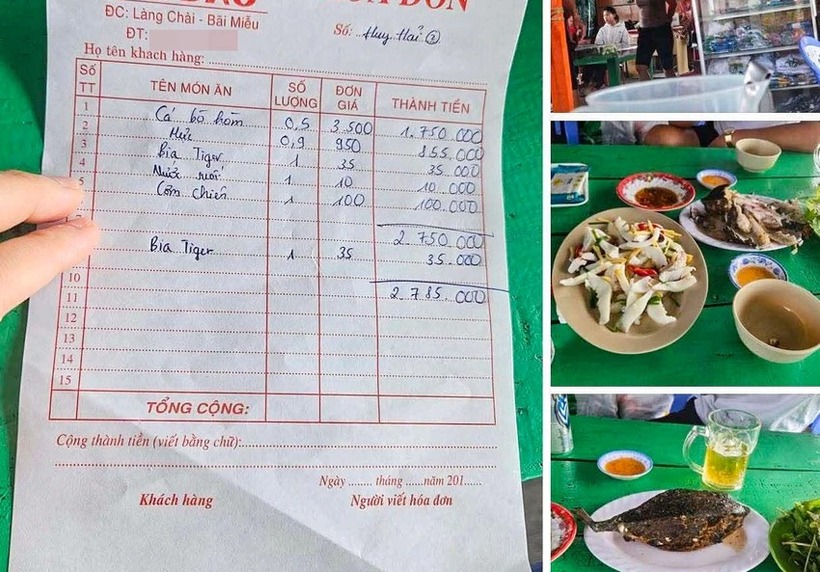 HÓA ĐƠN
ĐC: Làng Chài - Bãi Miễu
ĐT:
Số: Huy Hải 2
Họ tên khách hàng:
Số TT TÊN MÓN ĂN SỐ LƯỢNG ĐƠN GIÁ THÀNH TIỀN
1 Cá bò hòm 0,5 3.500 1.750.000
2 Mực 0,9 950 855.000
3 Bia Tiger 1 35 35.000
4 Nước suối 1 10 10.000
5 Cơm chiên 1 100 100.000
2.750.000
Bia Tiger 1 35 35.000
10
11 2.785.000
12
13
14
15
TỔNG CỘNG:
Cộng thành tiền (viết bằng chữ):
Ngày ........ tháng ......năm 201......
Khách hàng Người viết hóa đơn